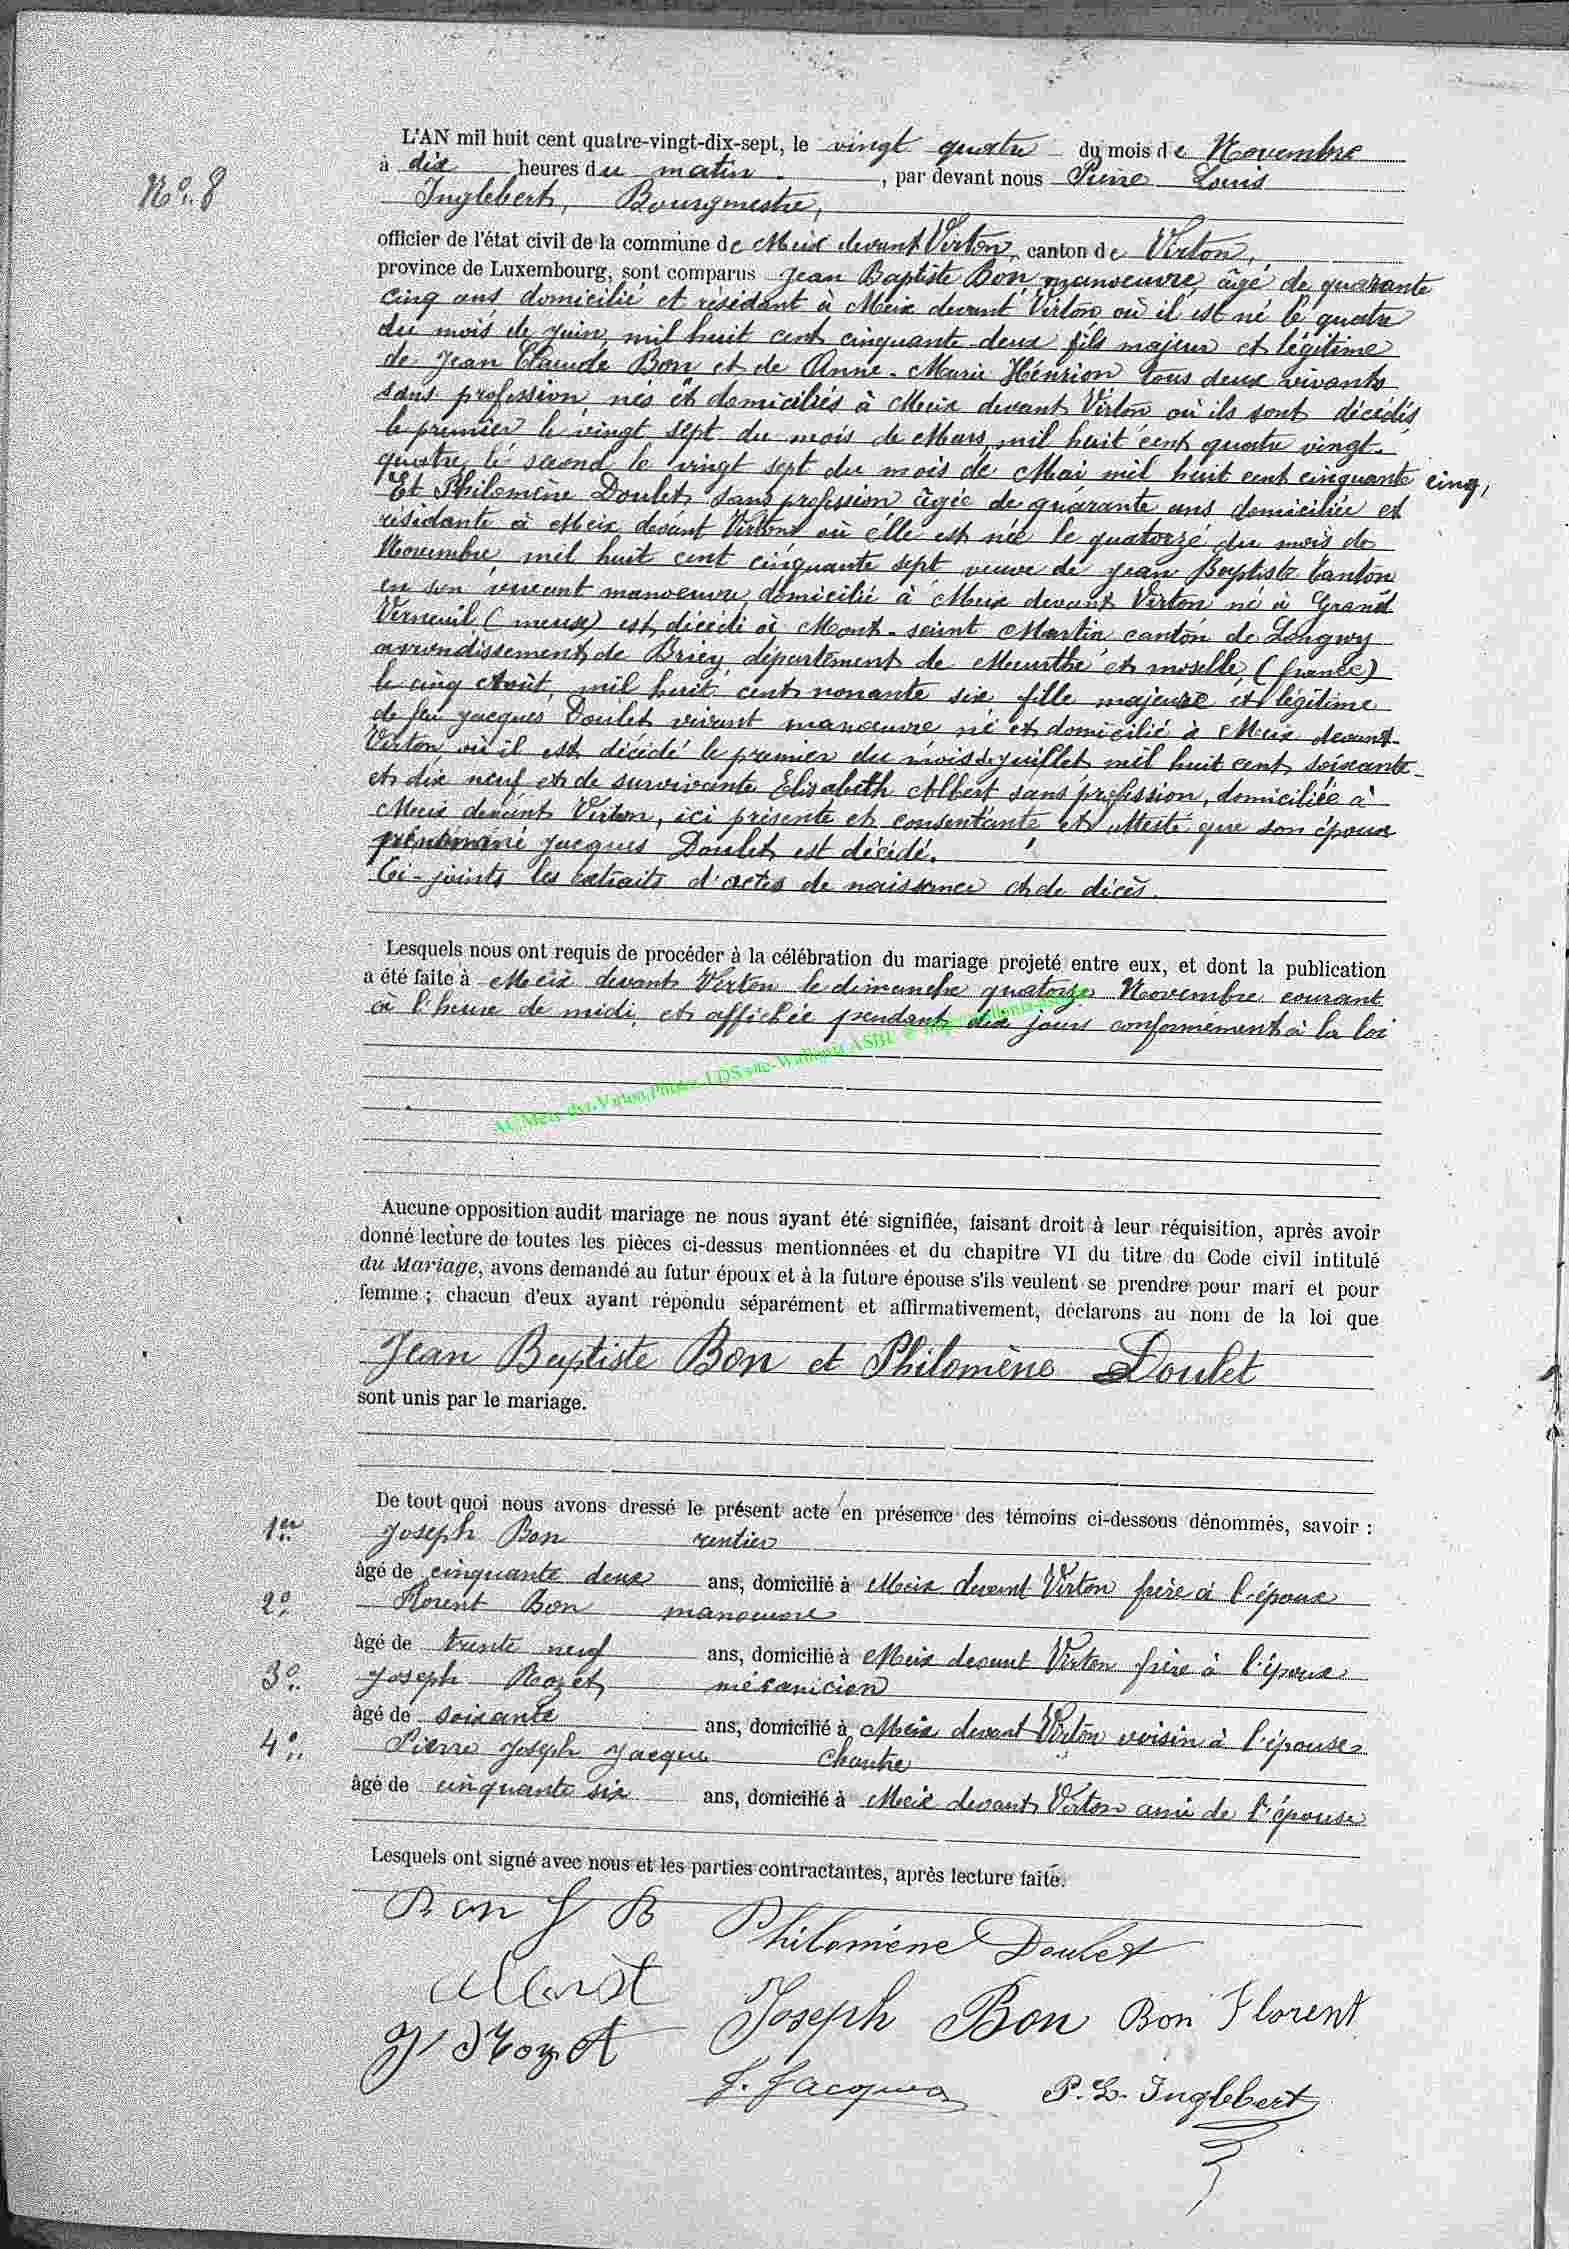 No. 8
L'AN mil huit cent quatre-vingt-dix-sept, le vingt quatre du mois de Novembre
à dix heures du matin, par devant nous Pierre Louis
Inglebert, Bourgmestre,
officier de l'état civil de la commune de Meix devant Virton, canton de Virton,
province de Luxembourg, sont comparus Jean Baptiste Bon manoeuvre, âgé de quarante
cinq ans domicilié et résidant à Meix devant Virton où il est né le quatre
du mois de juin, mil huit cent cinquante deux fils majeur et légitime
de Jean Claude Bon et de Anne-Marie Henrion tous deux vivants
sans profession nés et domiciliés à Meix devant Virton où ils sont décédés
le premier le vingt sept du mois de Mars mil huit cent quatre vingt-
quatre, le second le vingt sept du mois de Mai mil huit cent cinquante cinq,
Et Philomène Doulet, sans profession âgée de quarante ans domiciliée et
résidante à Meix devant Virton où elle est née le quatorze du mois de
Novembre mil huit cent cinquante sept veuve de Jean Baptiste Canton
en son vivant manoeuvre, domicilié à Meix devant Virton né à Grand
Verneuil (meuse) est décédé à Mont-saint Martin canton de Longwy
arrondissement de Briey département de Meurthe et moselle, (france)
le cinq Août, mil huit cent nonante six, fille majeure et légitime
de feu Jacques Doulet vivant manoeuvre né et domicilié à Meix devant-
Virton où il est décédé le premier du mois de juillet mil huit cent soixante-
et dix neuf et de survivante Elisabeth Albert sans profession, domiciliée à
Meix devant Virton, ici présente et consentante et atteste que son époux
prénommé Jacques Doulet est décédé.
Ci-joints les extraits d'actes de naissance et de décès.
Lesquels nous ont requis de procéder à la célébration du mariage projeté entre eux, et dont la publication
a été faite à Meix devant Virton le dimanche quatorze Novembre courant
à l'heure de midi, et affichée pendant dix jours conformément à la loi
Aucune opposition audit mariage ne nous ayant été signifiée, faisant droit à leur réquisition, après avoir
donné lecture de toutes les pièces ci-dessus mentionnées et du chapitre VI du titre du Code civil intitulé
du Mariage, avons demandé au futur époux et à la future épouse s'ils veulent se prendre pour mari et pour
femme ; chacun d'eux ayant répondu séparément et affirmativement, déclarons au nom de la loi que
Jean Baptiste Bon et Philomène Doulet
sont unis par le mariage.
De tout quoi nous avons dressé le présent acte en présence des témoins ci-dessous dénommés, savoir :
1er Joseph Bon rentier
âgé de cinquante deux ans, domicilié à Meix devant Virton frère à l'époux
2o Florent Bon manoeuvre
âgé de trente neuf ans, domicilié à Meix devant Virton frère à l'époux
3o Joseph Rozet mécanicien
âgé de soixante ans, domicilié à Meix devant Virton voisin à l'épouse
4o Pierre Joseph Jacque Chantre
âgé de cinquante six ans, domicilié à Meix devant Virton ami de l'épouse
Lesquels ont signé avec nous et les parties contractantes, après lecture faite.
Bon J B Philomène Doulet
Joseph Bon Bon Florent
J Rozet
J. Jacques P. L. Inglebert